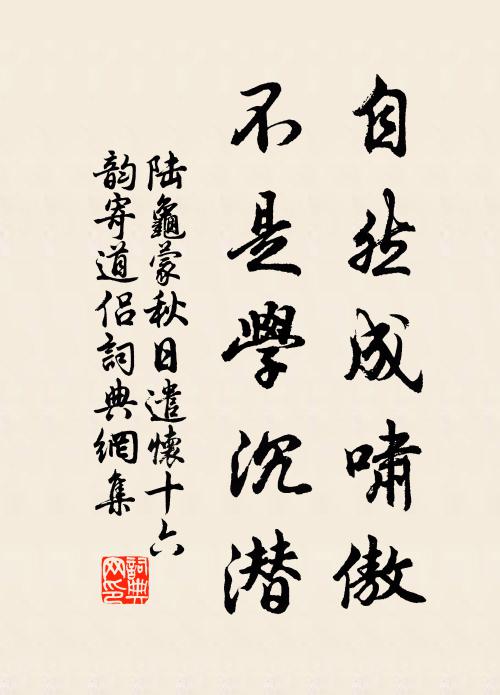 自然成嘯傲
不是學沉潛
陆龜蒙秋日遣懷十六
韵寄道侣詞典網集
詞典网印